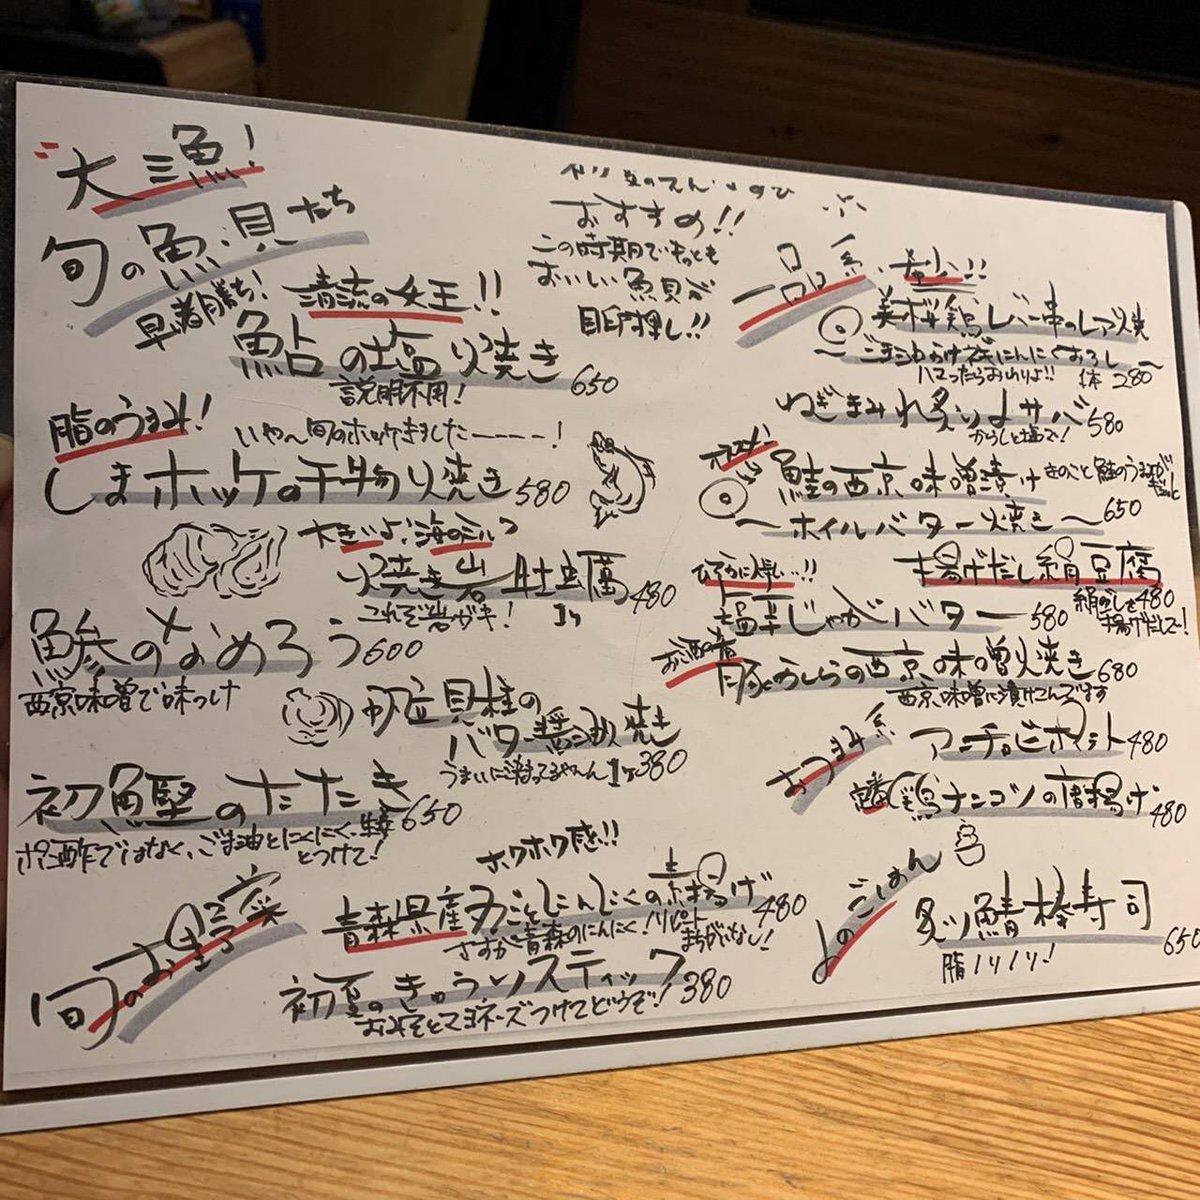 大漁!
旬の魚、貝たち
早い者勝ち!
おすすめ!!
この時期でもっとも
おいしい魚貝が
目白押し!!
清流の女王!!
鮎の塩焼き 650
説明不用!
脂のうまみ!
いやーん旬のホッケきましたーーーー!
しまホッケの干物焼き 580
大きいよ!海のミルク
焼き岩牡蠣 480
これぞ岩ガキ! 1ヶ
鯵のなめろう 600
西京味噌で味つけ
帆立貝柱の
バター醤油焼き
うまいに決まってるやーん 1ヶ380
初鰹のたたき 650
ポン酢ではなく、ごま油とにんにく、生姜
とつけて!
旬のお野菜
ホクホク感を!!
青森県産 丸ごとにんにくの素揚げ 480
さすが青森のにんにく!リピート
まちがいなし!
初夏のきゅうりスティック 380
おみそとマヨネーズつけてどうぞ!
一品系
美桜鶏レバー串のレア焼
〜ごま油かけてにんにくおろし〜
ハマったらお山りよ!! 1本 280
ねぎまみれ炙り〆サバ 580
からしと塩で!
鮭の西京味噌漬け
〜ホイルバター焼き〜 650
きのこと鮭のうまみが
ひそかに人気…!!
塩辛じゃがバター 580
揚げだし絹豆腐
絹ごしを 480
揚げだして!
お酒の肴
豚かしらの西京味噌焼き 680
西京味噌に漬けこんでます
おつまみ系
アンチョビポテト 480
定番 鶏ナンコツの唐揚げ 480
〆のごはん
炙り鯖棒寿司 650
脂ノリノリ!